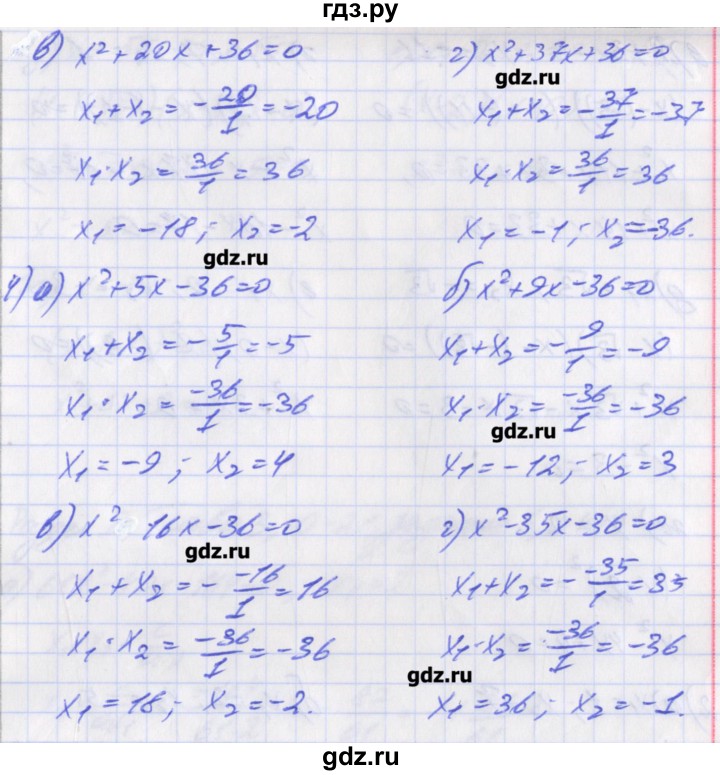 гдз.ру
в) x² + 20x + 36 = 0
x₁ + x₂ = -20/1 = -20
x₁ · x₂ = 36/1 = 36
x₁ = -18; x₂ = -2
г) x² + 37x + 36 = 0
gdz.ru
x₁ + x₂ = -37/1 = -37
x₁ · x₂ = 36/1 = 36
x₁ = -1; x₂ = -36.
gdz.ru
4) а) x² + 5x - 36 = 0
x₁ + x₂ = -5/1 = -5
x₁ · x₂ = -36/1 = -36
x₁ = -9; x₂ = 4
б) x² + 9x - 36 = 0
x₁ + x₂ = -9/1 = -9
x₁ · x₂ = -36/1 = -36
gdz.ru
x₁ = -12; x₂ = 3
в) x² - 16x - 36 = 0
gdz.ru
x₁ + x₂ = - -16/1 = 16
x₁ · x₂ = -36/1 = -36
x₁ = 18; x₂ = -2.
г) x² - 35x - 36 = 0
x₁ + x₂ = - -35/1 = 35
x₁ · x₂ = -36/1 = -36
gdz.ru
x₁ = 36; x₂ = -1.
gdz.ru